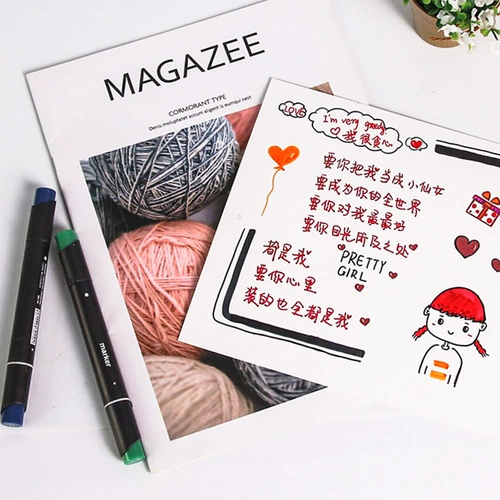 MAGAZEE
CORMORANT TYPE
Denis moluptatet accum aligent is eumqui nest
LOVE
I'm very greedy
我很贪心
要你把我当成小仙女
要成为你的全世界
要你对我最最好
要你目光所及之处
都是我
要你心里
装的也全都是我
PRETTY
GIRL
marker